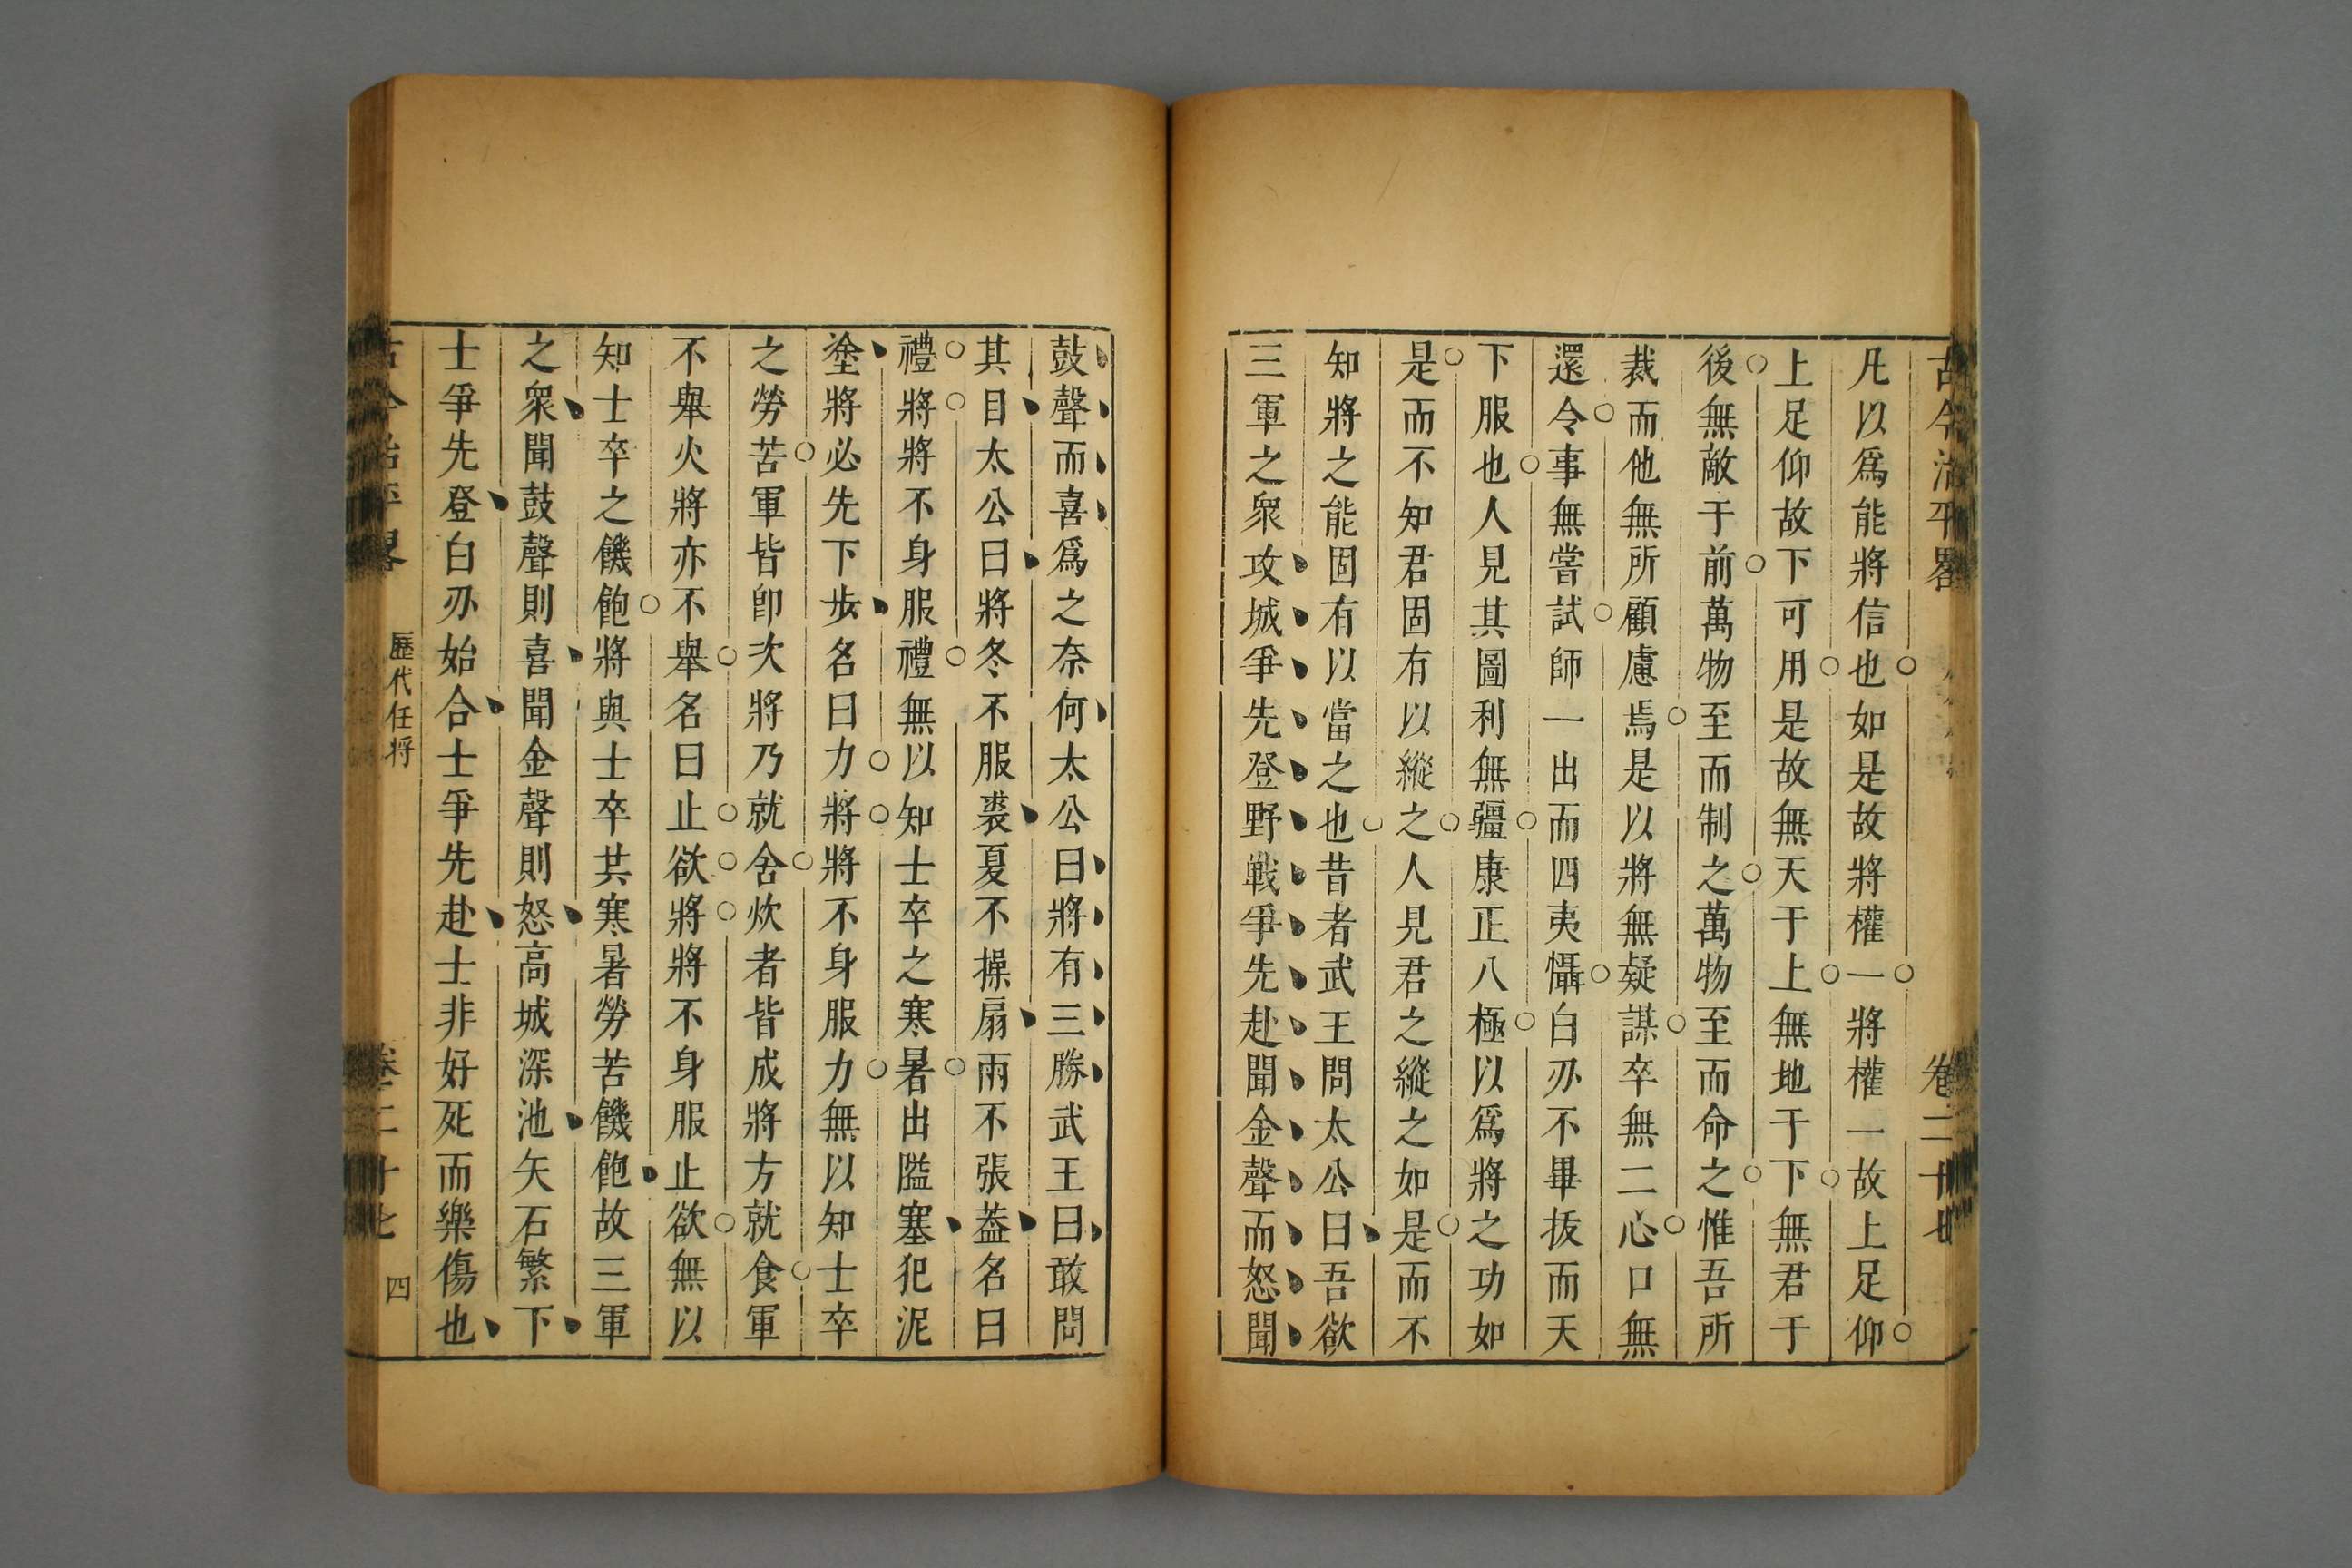 古今治平畧 卷二十七
凡以爲能將信也如是故將權一將權一故上足仰
上足仰故下可用是故無天于上無地于下無君于
後無敵于前萬物至而制之萬物至而命之惟吾所
裁而他無所顧慮焉是以將無疑謀卒無二心口無
還令事無嘗試師一出而四夷懾白刃不畢拔而天
下服也人見其圖利無疆康正八極以爲將之功如
是而不知君固有以縱之人見君之縱之如是而不
知將之能固有以當之也昔者武王問太公曰吾欲
三軍之衆攻城爭先登野戰爭先赴聞金聲而怒聞
鼓聲而喜爲之奈何太公曰將有三勝武王曰敢問
其目太公曰將冬不服裘夏不操扇雨不張葢名曰
禮將將不身服禮無以知士卒之寒暑出隘塞犯泥
塗將必先下步名曰力將將不身服力無以知士卒
之勞苦軍皆卽次將乃就舍炊者皆成將方就食軍
不舉火將亦不舉名曰止欲將將不身服止欲無以
知士卒之饑飽將與士卒共寒暑勞苦饑飽故三軍
之衆聞鼓聲則喜聞金聲則怒高城深池矢石繁下
士爭先登白刃始合士爭先赴士非好死而樂傷也
古今治平畧 歷代任將 卷二十七 四